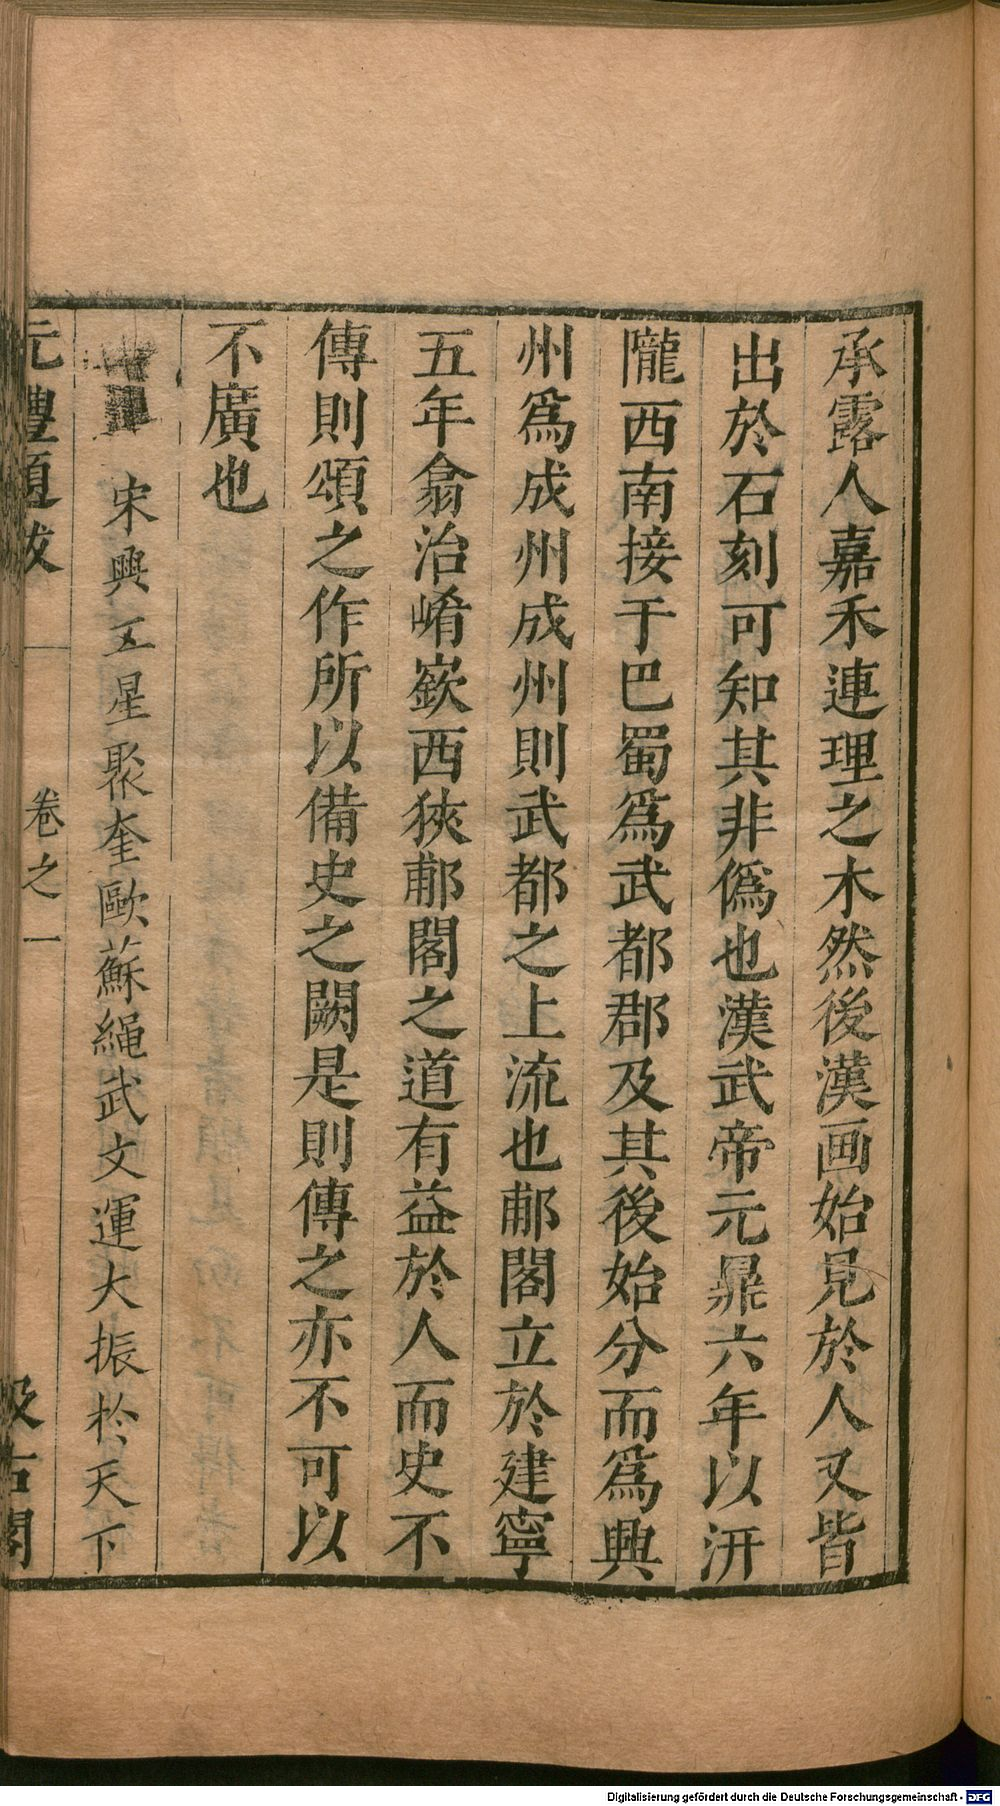 承露人嘉禾連理之木然後漢画始見於人又皆
出於石刻可知其非僞也漢武帝元鼎六年以汧
隴西南接于巴蜀爲武都郡及其後始分而爲興
州爲成州成州則武都之上流也郙閣立於建寧
五年翕治崤嶔西狹郙閣之道有益於人而史不
傳則頌之作所以備史之闕是則傳之亦不可以
不廣也
宋興五星聚奎歐蘇繩武文運大振於天下
元豐題跋 卷之一 汲古閣
Digitalisierung gefördert durch die Deutsche Forschungsgemeinschaft - DFG